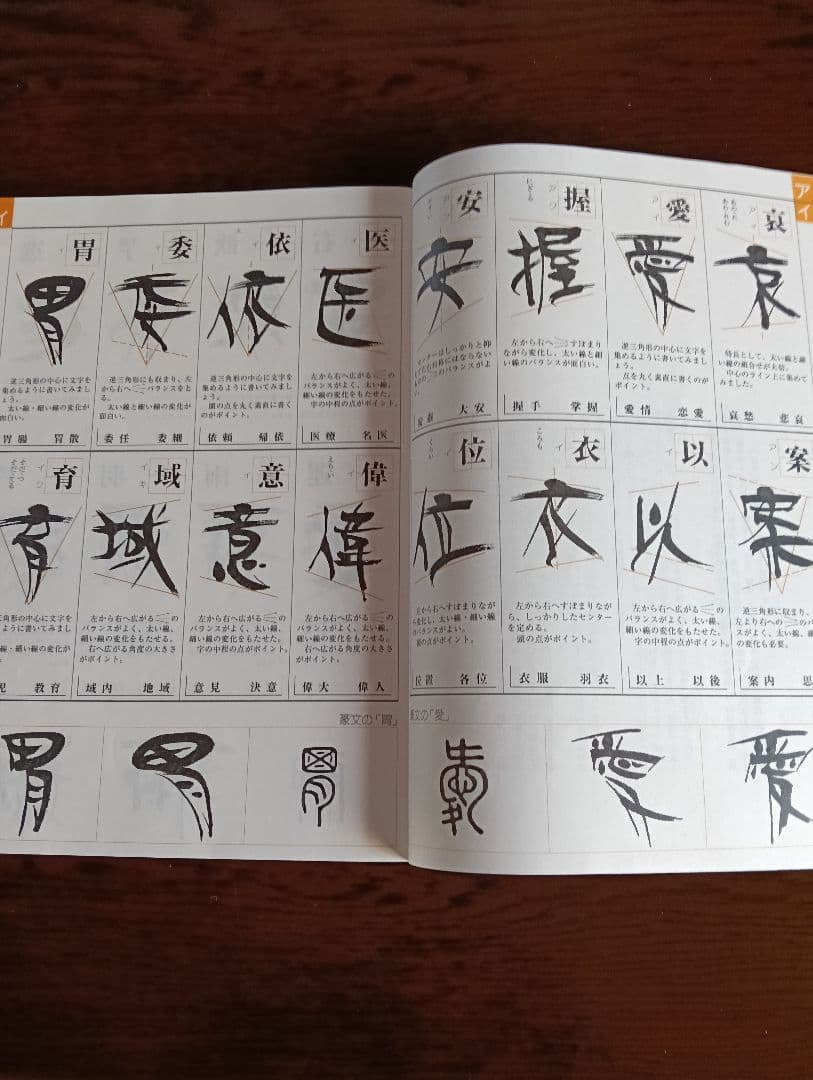 アイ
哀
アイ
あわれ
あわれむ
哀
特長として、太い線と細い
線の組合せが大切。
中心のライン上に集めて
みました。
哀愁 悲哀
愛
アイ
愛
逆三角形の中心に文字を
集めるように書いてみまし
ょう。
点を丸く素直に書くのが
ポイント。
愛情 恋愛
握
アク
にぎる
握
左から右へすぼまり
ながら変化し、太い線と細
い線のバランスが面白い。
握手 掌握
安
アン
やすい
安
センターはしっかりと抑
えて左右対称にはならない
バランスがよ
い。
大安
案
アン
案
逆三角形に収まり、
左より右への のバラ
ンスがよく、太い線、
細い線の変化も必要。
案内
以
イ
以
左から右へ広がる の
バランスがよく、太い線、
細い線の変化をもたせた。
字の中程の点がポイント。
以上 以後
衣
イ
ころも
衣
左から右へすぼまりなが
ら、しっかりしたセンター
を定める。
頭の点がポイント。
衣服 羽衣
位
イ
くらい
位
左から右へすぼまりなが
ら変化し、太い線・細い線
のバランスがよい。
頭の点がポイント。
位置 各位
篆文の「愛」
愛
愛
愛
イ
医
イ
医
左から右へ広がる の
バランスがよく、太い線、
細い線の変化をもたせた。
字の中程の点がポイント。
医療 名医
依
イ
依
逆三角形の中心に文字を
集めるように書いてみまし
ょう。
頭の点を丸く素直に書く
のがポイント。
依頼 帰依
委
イ
委
逆三角形にも収まり、左
から右へ バランスをと
る。
太いと細い線の変化が
面白い。
委任 委細
胃
イ
胃
逆三角形の中心に文字を
集めるように書いてみまし
ょう。
太い線・細い線の変化が
面白い。
胃腸 胃散
偉
イ
えらい
偉
左から右へ広がる の
バランスがよく、太い線、
細い線の変化をもたせる。
右へ広がる角度の大きさ
がポイント。
偉大 偉人
意
イ
意
左から右へ広がる の
バランスがよく、太い線、
細い線の変化をもたせた。
字の中程の点がポイント。
意見 決意
域
イキ
域
左から右へ広がる の
バランスがよく、太い線、
細い線の変化をもたせる。
右へ広がる角度の大きさ
がポイント。
域内 地域
育
イク
そだつ
そだてる
育
三角形の中心に文字を
ように書いてみまし
線・細い線の変化が
児 教育
篆文の「胃」
胃
胃
胃